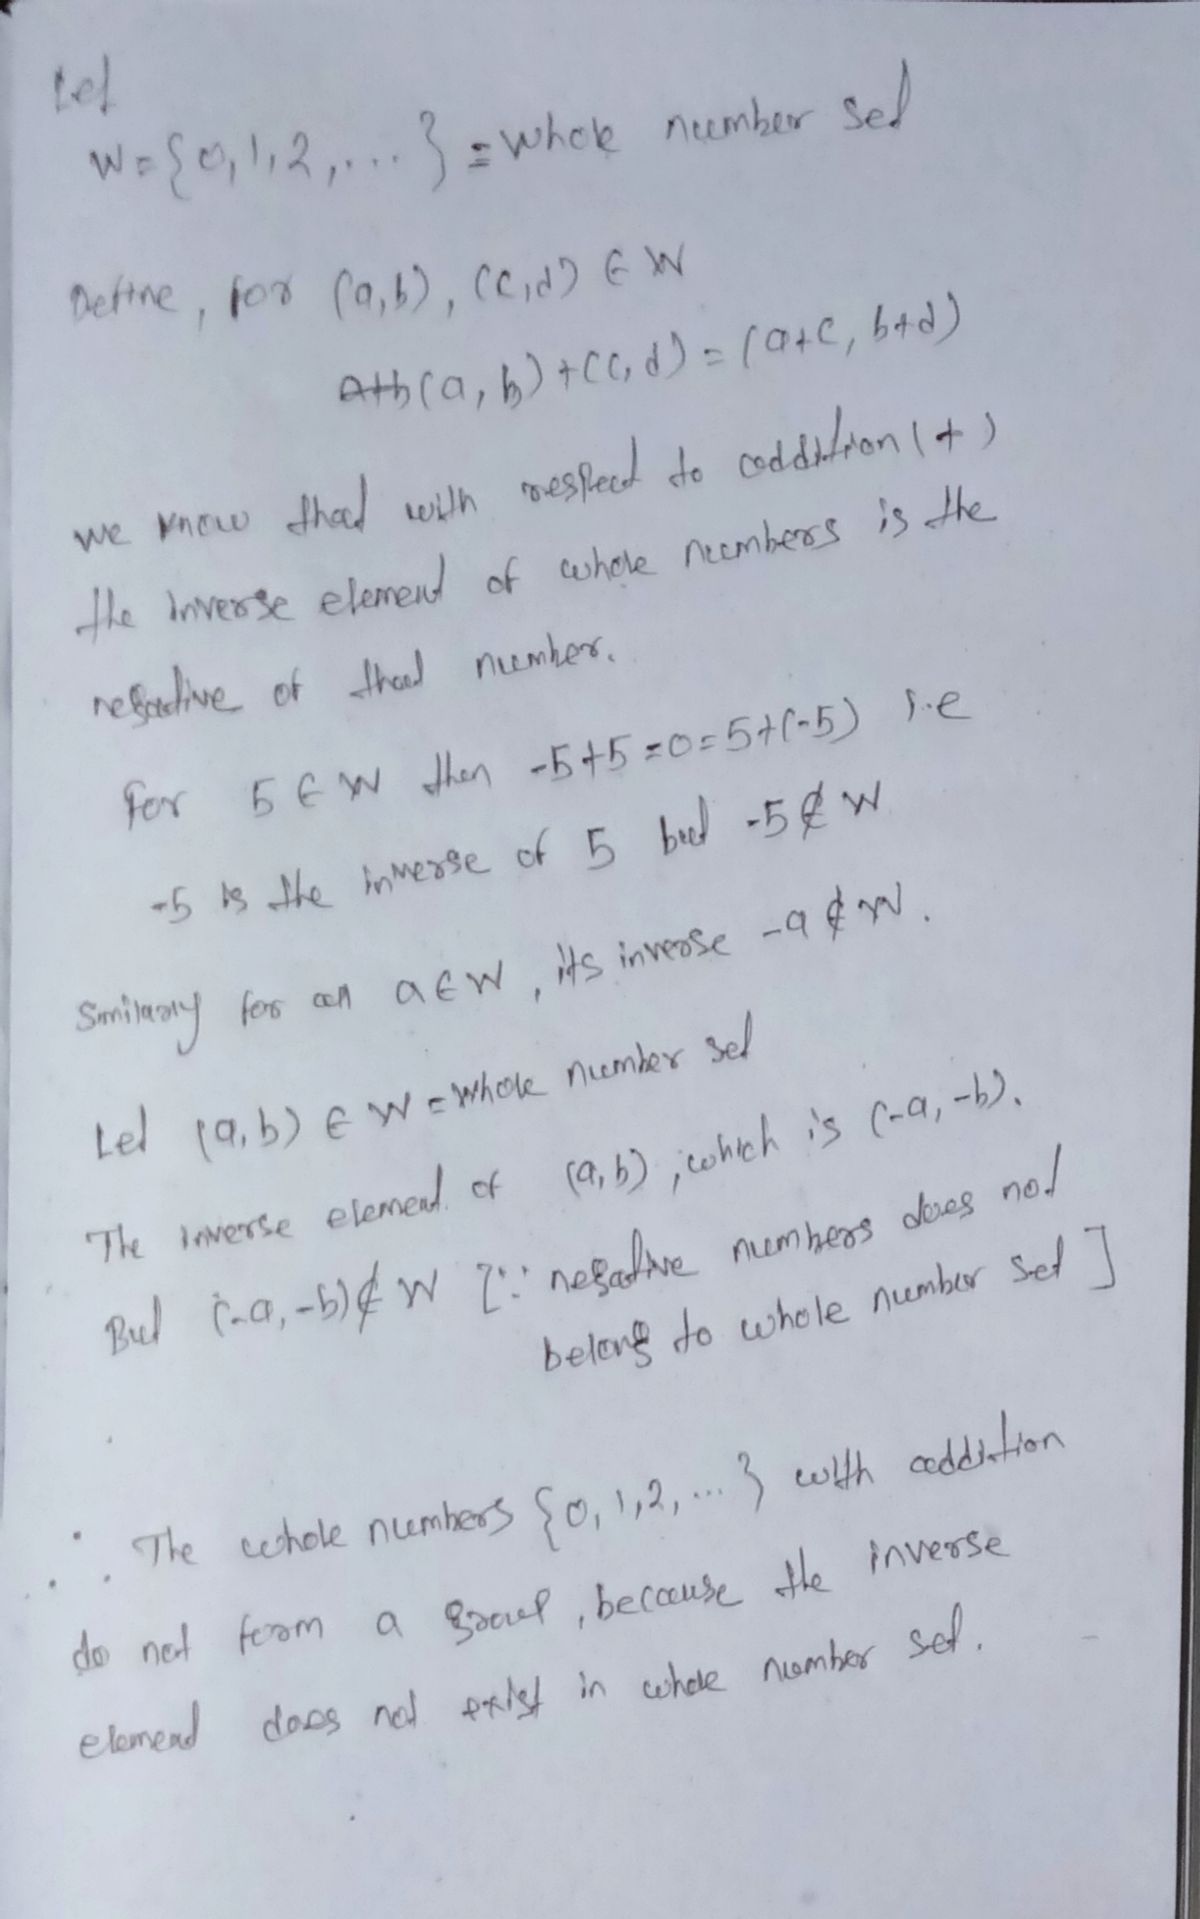 Let
W = {0, 1, 2, ... } = whole number set
Define, for (a,b), (c,d) ∈ W
(a, b) + (c, d) = (a+c, b+d)
we know that with respect to addition (+)
the inverse element of whole numbers is the
negative of that number.
For 5 ∈ W then -5+5=0=5+(-5) i.e
-5 is the inverse of 5 but -5 ∉ W
Similarly for all a ∈ W, its inverse -a ∉ W.
Let (a, b) ∈ W = whole number set
The inverse element of (a, b), which is (-a, -b).
But (-a, -b) ∉ W [∵ negative numbers does not
belong to whole number set]
∴ The whole numbers {0, 1, 2, ... } with addition
do not form a group, because the inverse
element does not exist in whole number set.